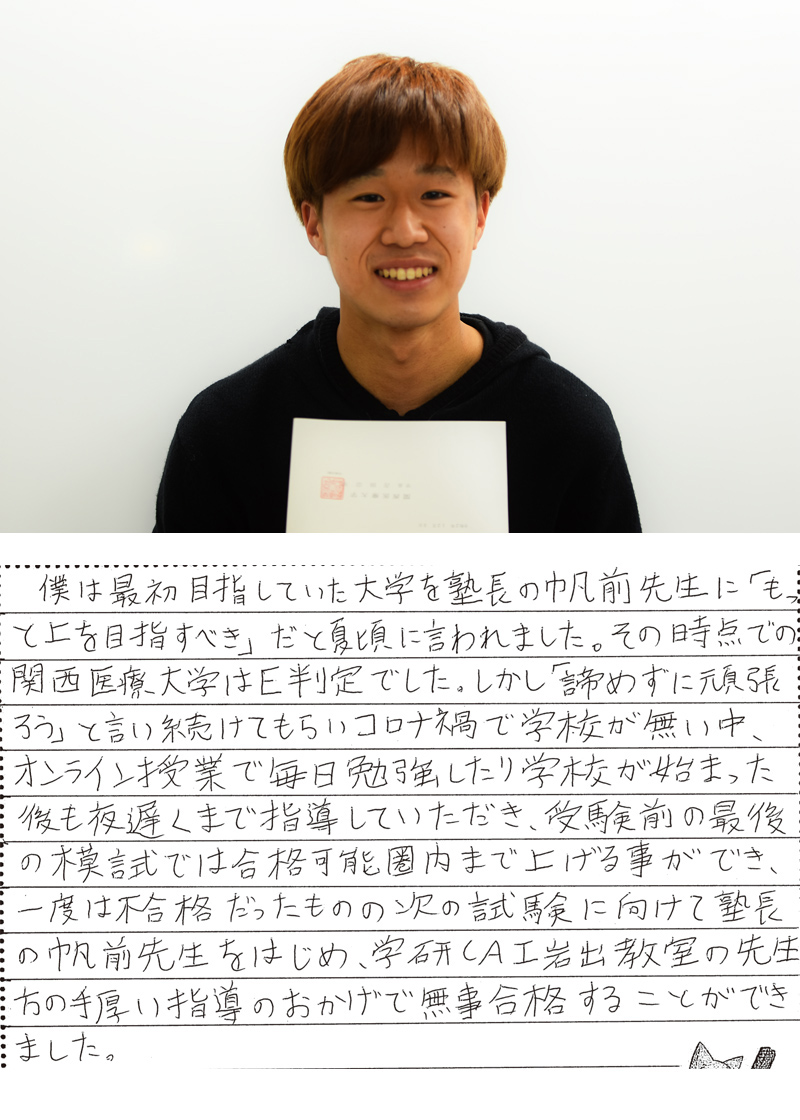 僕は最初目指していた大学を塾長の帆前先生に「もっ
と上を目指すべき」だと夏頃に言われました。その時点での
関西医療大学はE判定でした。しかし「諦めずに頑張
ろう」と言い続けてもらいコロナ禍で学校が無い中、
オンライン授業で毎日勉強したり学校が始まった
後も夜遅くまで指導していただき、受験前の最後
の模試では合格可能圏内まで上げる事ができ、
一度は不合格だったものの次の試験に向けて塾長
の帆前先生をはじめ、学研CAI岩出教室の先生
方の手厚い指導のおかげで無事合格することができ
ました。